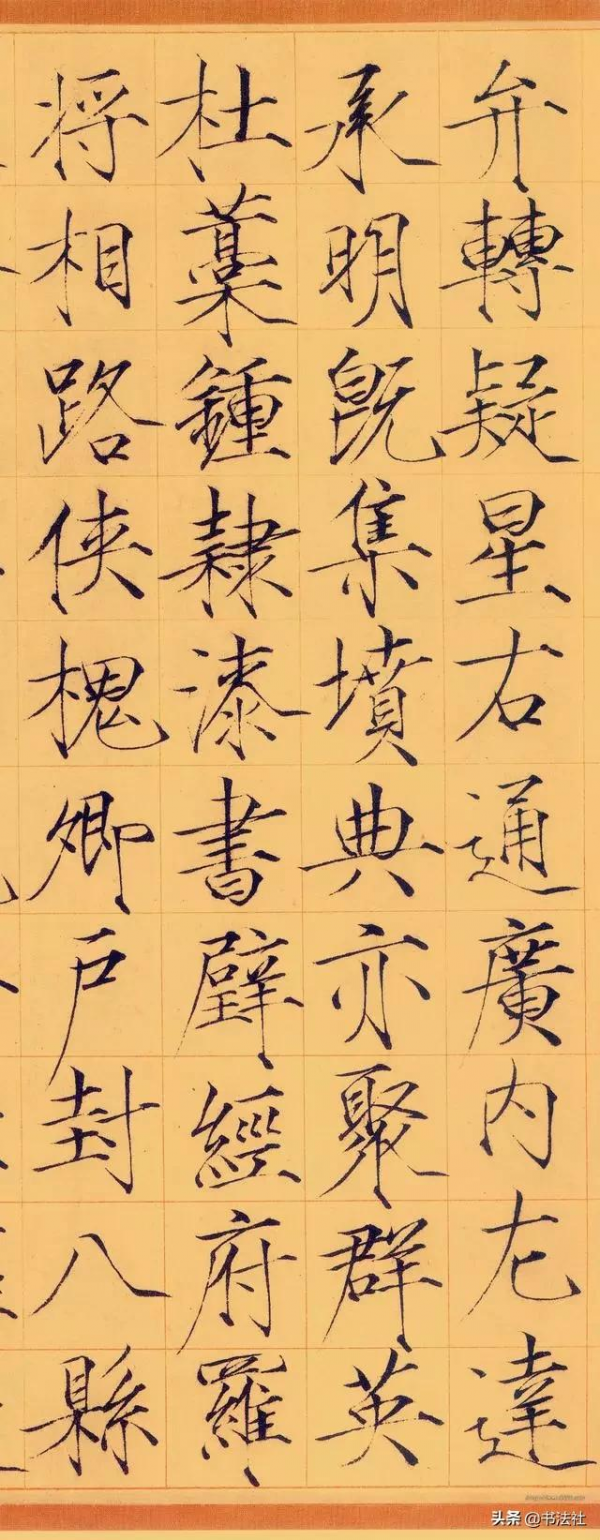 弁轉疑星右通廣内左達
承明既集墳典亦聚群英
杜藁鍾隸漆書壁經府羅
将相路俠槐卿户封八縣
头条 @书法社